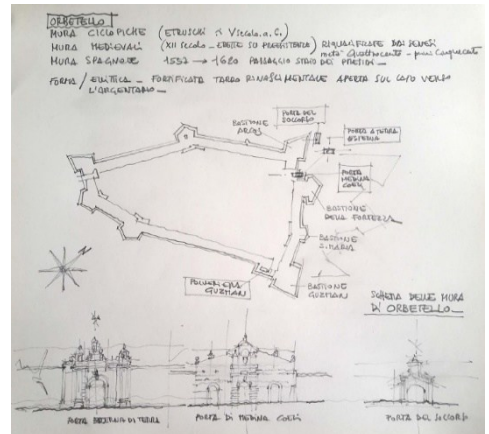 ORBETELLO
MURA CICLOPICHE (ETRUSCHI V secolo a.C.)
MURA MEDIEVALI (XII secolo - ERETTE SU PREESISTENZA) RIQUALIFICATE DAI SENESI
metà Quattrocento - primi Cinquecento
MURA SPAGNOLE 1557 → 1620 PASSAGGIO STATO DEI PRESIDI -
FORMA / ELLITICA - FORTIFICATA TARDO RINASCIMENTALE APERTA SUL LATO VERSO
L'ARGENTARIO -
PORTA DEL
SOCCORSO
BASTIONE
PORTA A TERRA
ESTERNA
PORTA
MEDINA
COELI
BASTIONE
DELLA FORTEZZA
BASTIONE
S. MARIA
BASTIONE
GUZMAN
POLVERIERA
GUZMAN
SCHEMA DELLE MURA
DI ORBETELLO
PORTA ESTERNA DI TERRA
PORTA DI MEDINA COELI
PORTA DEL SOCCORSO